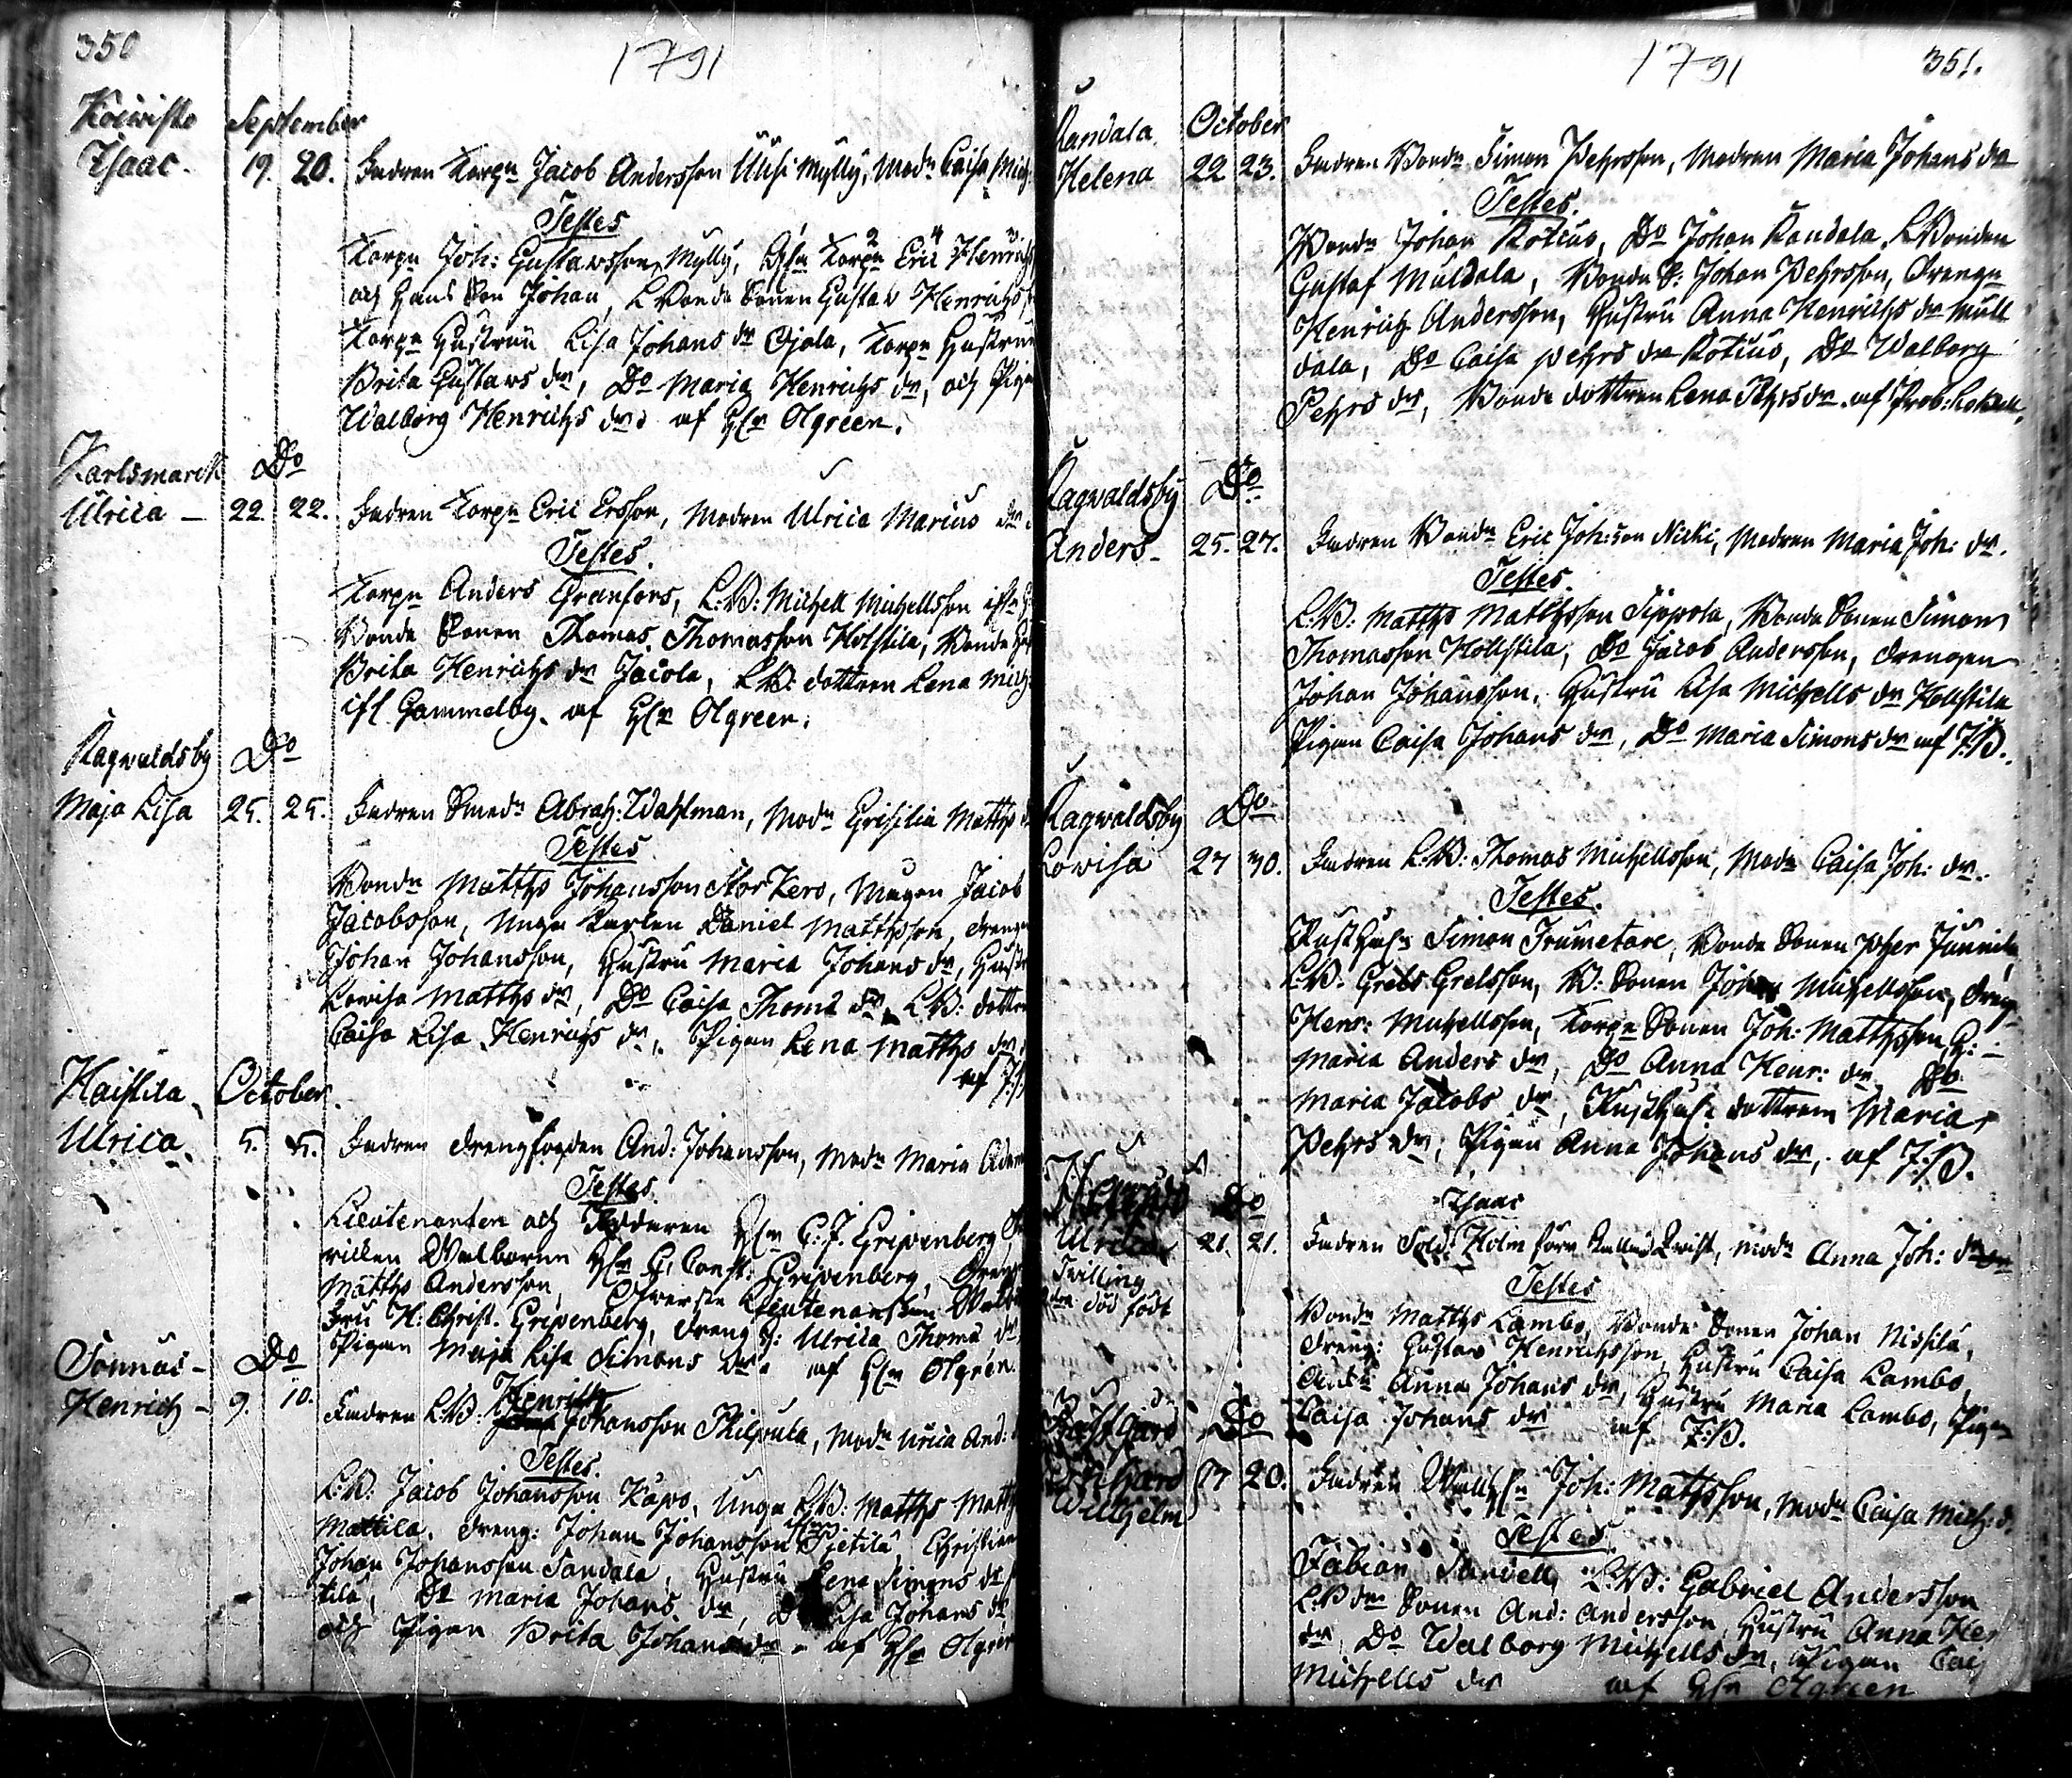 350
1791
Koivisto September
Isaac. 19. 20. Fadren Torpn Jacob Andersson Uusi Mylly, Modn Caisa Mich:
Testes
Torpn Joh: Gustavsson Mylly, Torpn Eric Henrichs
och Hans Son Johan, LBonde Sonen Gustav Henrichss
Torpn Hustrun Lisa Johans dr Ojala, Torpn Hustrun
Brita Gustavs dr, Do Maria Henrichs dr, och Pigan
Walborg Henrichs dr. af Hr Olgreen.
Karlsmarck Do
Ulrica - 22. 22. Fadren Torpn Eric Ersson, Modren Ulrica Marius dr.
Testes.
Torpn Anders Granfors, L:B: Michell Michellsson
Bonde Sonen Thomas Thomasson Holstila, Bonde
Brita Henrichs dr Jacola, LB: dottren Lena Mich:
Gammelby. af Hr Olgreen.
Ragvaldsby Do
Maja Lisa 25. 25. Fadren Smedn Abrah: Wahlman, Modn Grisilia Matths
Testes
Bondn Matths Johansson Stor Kero, Jacob
Jacobsson, Unga Karlen Daniel Mathsson, drengn
Johan Johansson, Hustru Maria Johans dr, Hustr
Lovisa Matths dr, Do Caisa Thoms dr, L:B: dottren
Caisa Lisa Henrichs dr, Pigan Lena Matths dr.
af
Haistila, October.
Ulrica. 5. 5. Fadren drengfogden And: Johansson, Modn Maria
Testes.
Lieutenanten och Riddaren Hr C: J. Gripenberg,
Walborne Hr C: Const: Gripenberg,
Matths Andersson, Lieutenanskan
Fru H: Christ. Gripenberg, dreng H: Ulrica Thoms dr
Pigan Maja Lisa Simons dr. af Hr Olgren.
Sonnäs - Do
Henrich - 9. 10. Fadren L:B: Henrich Johansson Philpula, Modn Urica And:
Testes.
L:B: Jacob Johansson Kápo, Unga L:B: Matths Matths
Mattila. dreng: Johan Johansson Pietilä Christian
Johan Johansson Sandala, Hustru Lena Simons dr
tila, Do Maria Johans dr, Do Lisa Johans dr
och Pigan Brita Johans dr. af Hr Olgren
1791
351.
Randala October
Helena 22 23. Fadren Bondn Simon Pehrsson, Modren Maria Johans dr
Testes.
Bondn Johan Rotius, Do Johan Randala, LBonden
Gustaf Muldala, Bonde S: Johan Pehrsson, drengn
Henrich Andersson, Hustru Anna Henrichs dr Mull
dala, Do Caisa Pehrs dr Rotius, Do Walborg
Pehrs dr, Bonde dottren Lena Pehrs dr. af Prob:
Ragvaldsby Do
Anders - 25. 27. Fadren Bondn Eric Joh:son Nicki, Modren Maria Joh: dr.
Testes.
L:B: Matths Mathsson Sippola, Bonde Sonen Simon
Thomasson Hollstila, Do Jacob Andersson, drengen
Johan Johansson, Hustru Lisa Michells dr Hollstila
Pigan Caisa Johans dr, Do Maria Simons dr af J:B.
Ragvaldsby Do
Lovisa 27 30. Fadren L:B: Thomas Michellsson, Modn Caisa Joh: dr.
Testes.
Rusth: Simon Trumetare, Bonde Sonen Pher Junnila
L:B: Grels Grelsson, B: Sonen Johan Michellsson, dreng
Henr: Michellsson, Torpn Sonen Joh: Mathsson, H:
Maria Anders dr, Do Anna Henr: dr, Do
Maria Jacobs dr, Rusth: dottren Maria
Pehrs dr, Pigan Anna Johans dr, af J:B.
Do Isaac
Ulrica 21. 21. Fadren Sold: Holm förr kallad Qwist, Modn Anna Joh: dr
Twilling död född
Testes
Bondn Matths Lambo, Bonde Sonen Johan Nissilä,
dreng: Gustav Henrichsson, Hustru Caisa Lambo,
Anna Johans dr, Hustru Maria Lambo, Pigan
Caisa Johans dr af J:B.
Do
Wilhelm 17 20. Fadren Joh: Mathsson, Modn Caisa Mich: d.
Testes
Fabian Sandell, L:B: Gabriel Andersson
L:Bdn Sonen And: Andersson, Hustru Anna Hen
dr, Do Walborg Michells dr, Pigan Cais
Michells dr af Hr Olgreen